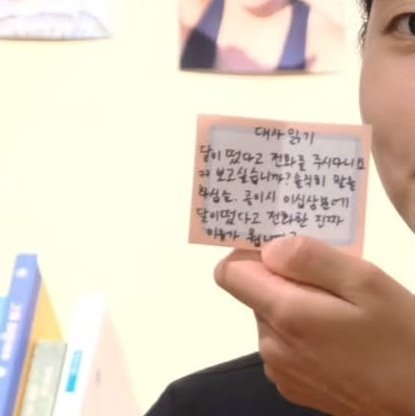 대사 읽기
달이 떴다고 전화를 주시다니요
보고싶습니까? 솔직히 말
하십쇼. 공이시 이십삼분에
달이떴다고 전화한 진짜
이유가